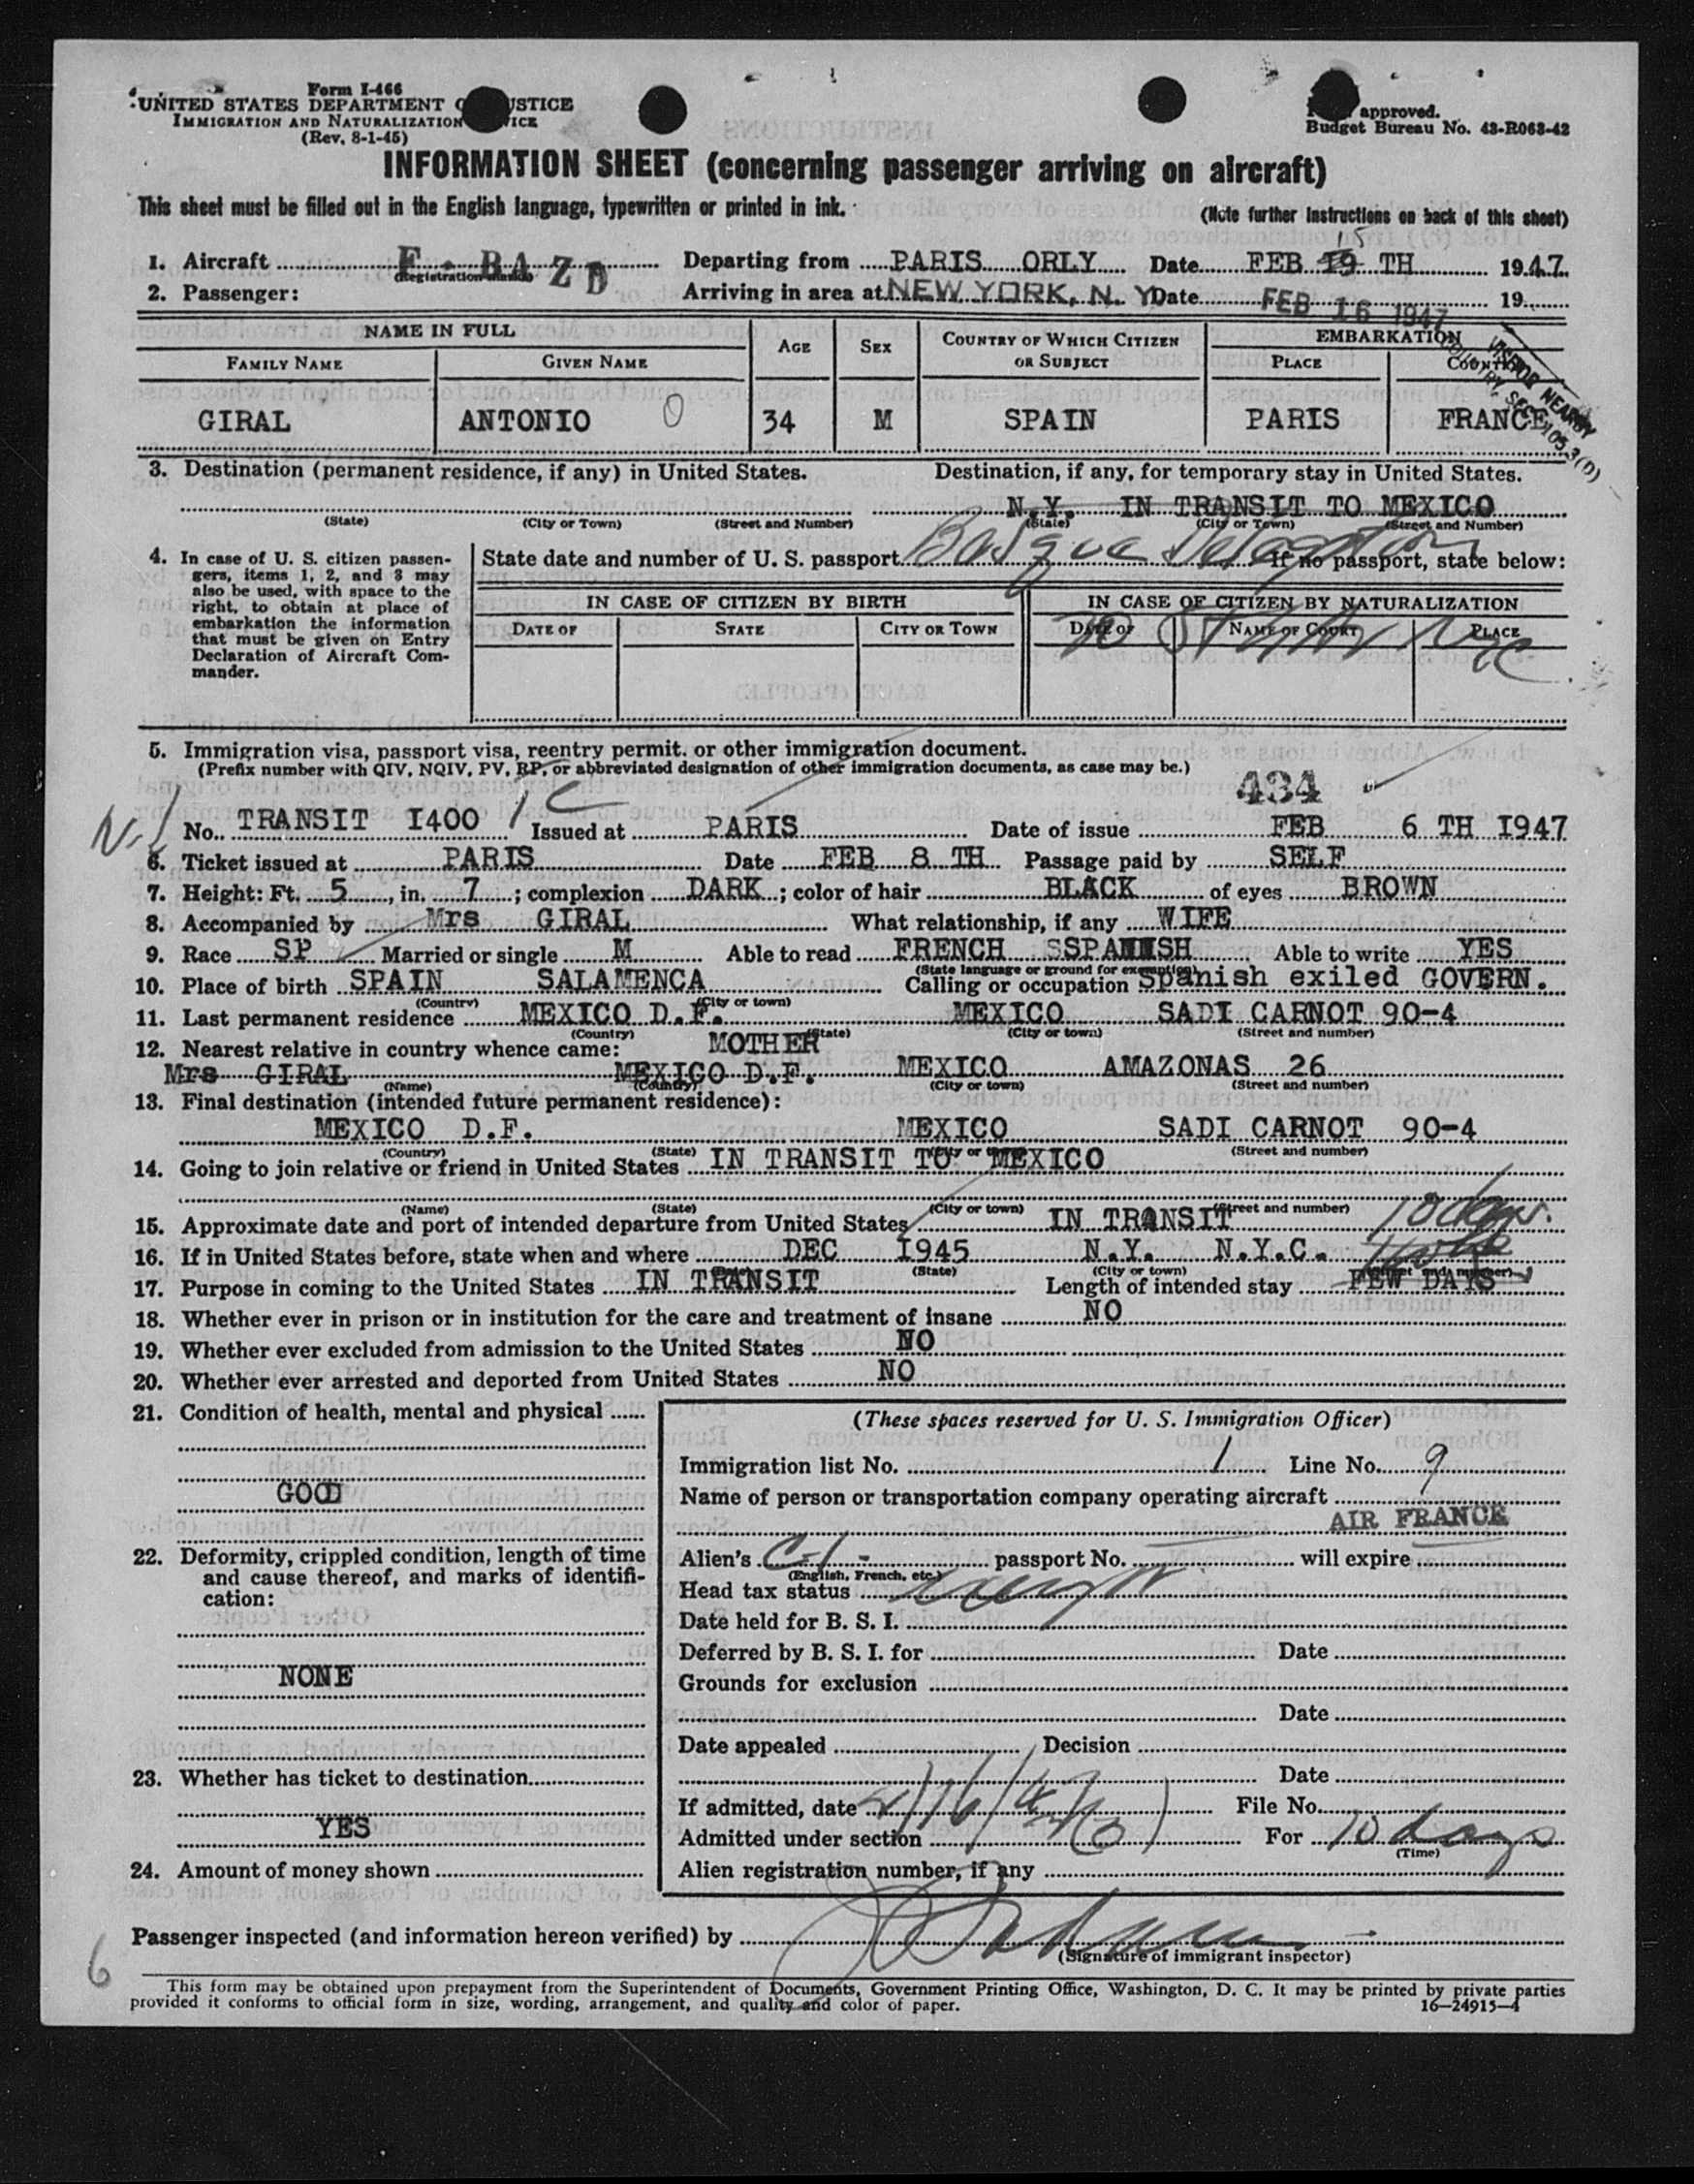 Form I-466
UNITED STATES DEPARTMENT O USTICE
IMMIGRATION AND NATURALIZATION VICE
(Rev. 8-1-45)
approved.
Budget Bureau No. 43-R063-42
INFORMATION SHEET (concerning passenger arriving on aircraft)
This sheet must be filled out in the English language, typewritten or printed in ink.
(Note further instructions on back of this sheet)
1. Aircraft F-BAZD Departing from PARIS ORLY Date FEB 19 15 TH 1947
(Registration marks)
2. Passenger: Arriving in area at NEW YORK, N. Y Date FEB 16 1947 19
NAME IN FULL AGE SEX COUNTRY OF WHICH CITIZEN OR SUBJECT EMBARKATION
FAMILY NAME GIVEN NAME PLACE COUNTRY
VISITOR NEARBY
COUNTRY, SEC. 105.3(D)
GIRAL ANTONIO O 34 M SPAIN PARIS FRANCE
3. Destination (permanent residence, if any) in United States. Destination, if any, for temporary stay in United States.
N.Y. IN TRANSIT TO MEXICO
(State) (City or Town) (Street and Number) (State) (City or Town) (Street and Number)
4. In case of U. S. citizen passengers, items 1, 2, and 3 may also be used, with space to the right, to obtain at place of embarkation the information that must be given on Entry Declaration of Aircraft Commander.
State date and number of U. S. passport Basque Delegation If no passport, state below:
IN CASE OF CITIZEN BY BIRTH IN CASE OF CITIZEN BY NATURALIZATION
DATE OF STATE CITY OR TOWN DATE OF NAME OF COURT PLACE
NYC
5. Immigration visa, passport visa, reentry permit, or other immigration document.
(Prefix number with QIV, NQIV, PV, RP, or abbreviated designation of other immigration documents, as case may be.)
434
No. TRANSIT I400 Issued at PARIS Date of issue FEB 6 TH I947
6. Ticket issued at PARIS Date FEB 8 TH Passage paid by SELF
7. Height: Ft. 5, in. 7; complexion DARK; color of hair BLACK of eyes BROWN
8. Accompanied by Mrs GIRAL What relationship, if any WIFE
9. Race SP Married or single M Able to read FRENCH SSPANISH Able to write YES
(State language or ground for exemption)
10. Place of birth SPAIN SALAMENCA Calling or occupation Spanish exiled GOVERN.
(Country) (City or town)
11. Last permanent residence MEXICO D.F. MEXICO SADI CARNOT 90-4
(Country) (State) (City or town) (Street and number)
12. Nearest relative in country whence came: MOTHER
Mrs GIRAL MEXICO D.F. MEXICO AMAZONAS 26
(Name) (Country) (City or town) (Street and number)
13. Final destination (intended future permanent residence):
MEXICO D.F. MEXICO SADI CARNOT 90-4
(Country) (State) (City or town) (Street and number)
14. Going to join relative or friend in United States IN TRANSIT TO MEXICO
(Name) (State) (City or town) (Street and number)
15. Approximate date and port of intended departure from United States IN TRANSIT 10 days.
16. If in United States before, state when and where DEC I945 N.Y. N.Y.C.
(State) (City or town) (Street and number)
17. Purpose in coming to the United States IN TRANSIT Length of intended stay FEW DAYS
18. Whether ever in prison or in institution for the care and treatment of insane NO
19. Whether ever excluded from admission to the United States NO
20. Whether ever arrested and deported from United States NO
21. Condition of health, mental and physical
GOOD
22. Deformity, crippled condition, length of time and cause thereof, and marks of identification:
NONE
23. Whether has ticket to destination
YES
24. Amount of money shown
(These spaces reserved for U. S. Immigration Officer)
Immigration list No. 1 Line No. 9
Name of person or transportation company operating aircraft
AIR FRANCE
Alien's C-1 - passport No. will expire
(English, French, etc.)
Head tax status
Date held for B. S. I.
Deferred by B. S. I. for Date
Grounds for exclusion
Date
Date appealed Decision
Date
If admitted, date 2/16/47 File No.
Admitted under section For 10 days
(Time)
Alien registration number, if any
Passenger inspected (and information hereon verified) by
(Signature of immigrant inspector)
6
This form may be obtained upon prepayment from the Superintendent of Documents, Government Printing Office, Washington, D. C. It may be printed by private parties
provided it conforms to official form in size, wording, arrangement, and quality and color of paper. 16—24915-4